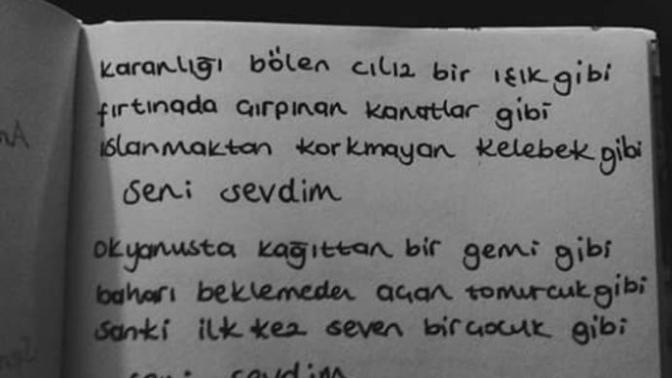 karanlığı bölen cılız bir ışık gibi
fırtınada çırpınan kanatlar gibi
ıslanmaktan korkmayan kelebek gibi
seni sevdim
okyanusta kağıttan bir gemi gibi
baharı beklemeden açan tomurcuk gibi
sanki ilk kez seven bir çocuk gibi
seni sevdim